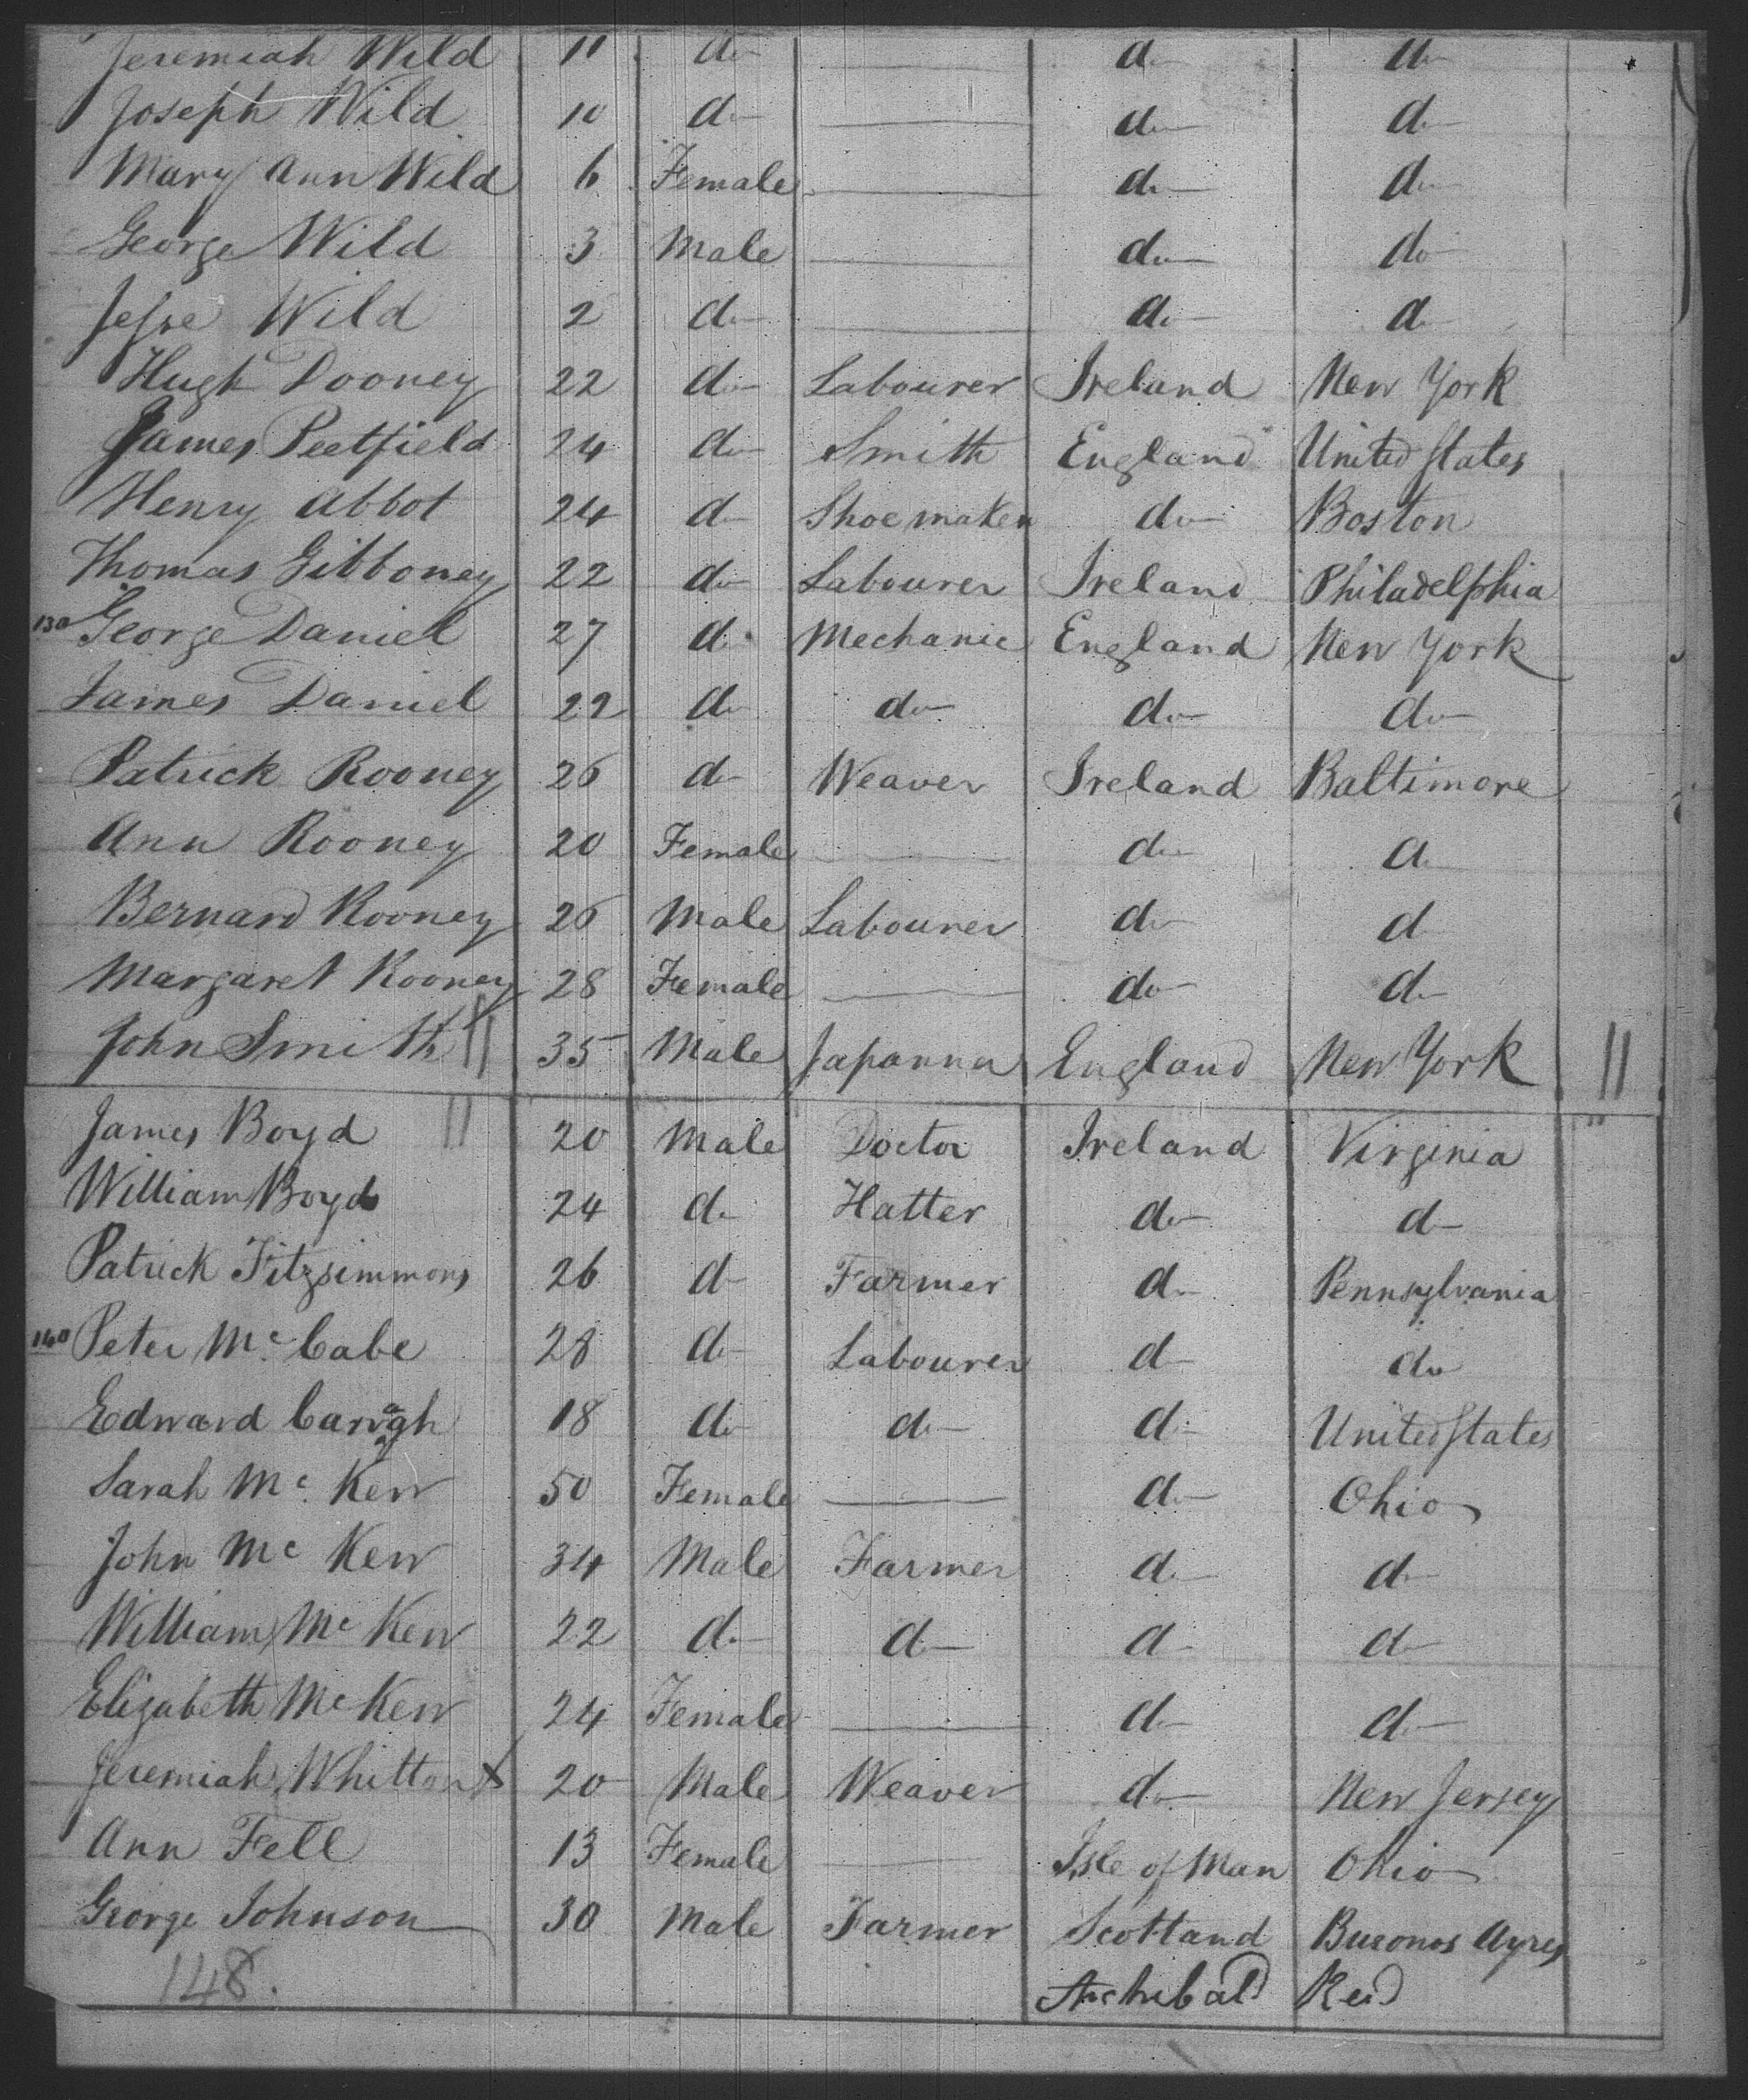 Jeremiah Wild 11 do do do
Joseph Wild 10 do do do
Mary Ann Wild 6 Female do do
George Wild 3 Male do do
Jesse Wild 2 do do do
Hugh Dooney 22 do Labourer Ireland New York
James Peetfield 24 do Smith England United States
Henry Abbot 24 do Shoemaker do Boston
Thomas Gibboney 22 do Labourer Ireland Philadelphia
130 George Daniel 27 do Mechanic England New York
James Daniel 22 do do do do
Patrick Rooney 26 do Weaver Ireland Baltimore
Ann Rooney 20 Female do do
Bernard Rooney 26 Male Labourer do do
Margaret Rooney 28 Female do do
John Smith 35 Male Japanner England New York
James Boyd 20 Male Doctor Ireland Virginia
William Boyd 24 do Hatter do do
Patrick Fitzsimmons 26 do Farmer do Pennsylvania
140 Peter Mc Cabe 28 do Labourer do do
Edward Carragh 18 do do do United States
Sarah Mc Kew 50 Female do Ohio
John Mc Kew 34 Male Farmer do do
William Mc Kew 22 do do do do
Elizabeth Mc Kew 24 Female do do
Jeremiah Whitton X 20 Male Weaver do New Jersey
Ann Fell 13 Female Isle of Man Ohio
George Johnson 30 Male Farmer Scotland Buonos Ayres
148. Archibald Reid